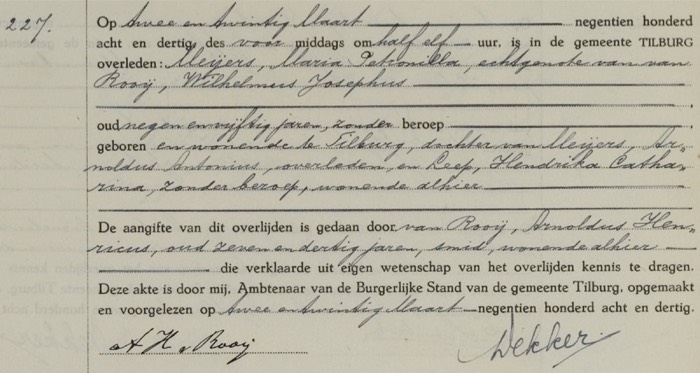 227.
Op twee en twintig Maart negentien honderd
acht en dertig, des voor middags om half elf uur, is in de gemeente TILBURG
overleden: Meijers, Maria Petronilla, echtgenote van van
Rooij, Wilhelmus Josephus
oud negen en vijftig jaren, zonder beroep
geboren en wonende te Tilburg, dochter van Meijers, Ar„
noldus Antonius, overleden, en Leep, Hendrika Catha„
rina, zonder beroep, wonende alhier
De aangifte van dit overlijden is gedaan door van Rooij, Arnoldus Hen„
ricus, oud zeven en dertig jaren, smid, wonende alhier
die verklaarde uit eigen wetenschap van het overlijden kennis te dragen.
Deze akte is door mij, Ambtenaar van de Burgerlijke Stand van de gemeente Tilburg, opgemaakt
en voorgelezen op twee en twintig Maart negentien honderd acht en dertig.
A H v Rooij
Dekker.